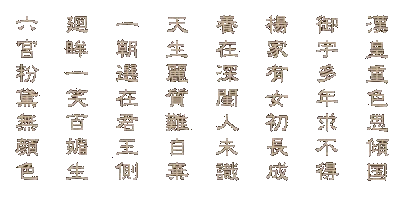 漢皇重色思傾國
御宇多年求不得
楊家有女初長成
養在深閨人未識
天生麗質難自棄
一朝選在君王側
迴眸一笑百媚生
六宮粉黛無顏色